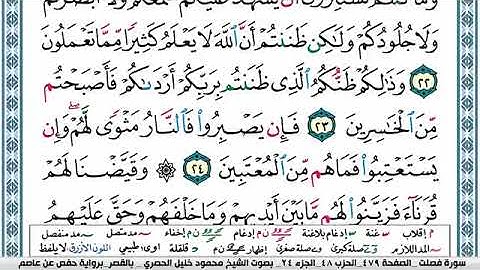 وَمَا كُنتُمْ تَسْتَتِرُونَ أَن يَشْهَدَ عَلَيْكُمْ سَمْعُكُمْ وَلَآ أَبْصَٰرُكُمْ
وَلَا جُلُودُكُمْ وَلَٰكِن ظَنَنتُمْ أَنَّ ٱللَّهَ لَا يَعْلَمُ كَثِيرًا مِّمَّا تَعْمَلُونَ
٢٢ وَذَٰلِكُمْ ظَنُّكُمُ ٱلَّذِى ظَنَنتُم بِرَبِّكُمْ أَرْدَىٰكُمْ فَأَصْبَحْتُم
مِّنَ ٱلْخَٰسِرِينَ ٢٣ فَإِن يَصْبِرُوا۟ فَٱلنَّارُ مَثْوًى لَّهُمْ ۖ وَإِن
يَسْتَعْتِبُوا۟ فَمَا هُم مِّنَ ٱلْمُعْتَبِينَ ٢٤ ۞ وَقَيَّضْنَا لَهُمْ
قُرَنَآءَ فَزَيَّنُوا۟ لَهُم مَّا بَيْنَ أَيْدِيهِمْ وَمَا خَلْفَهُمْ وَحَقَّ عَلَيْهِمُ
م إقلاب غنة إدغام بلاغنة ن م إدغام ن م إخفاء مد متصل مد منفصل
المد اللازم صلة كبرى صلة صغرى إظهار ن م قلقلة اوى طبيعي اللون الأزرق لا يلفظ
سورة فصلت _الصفحة ٤٧٩_ الحزب ٤٨_ الجزء ٢٤ _ بصوت الشيخ محمود خليل الحصري _ بالقصر_برواية حفص عن عاصم